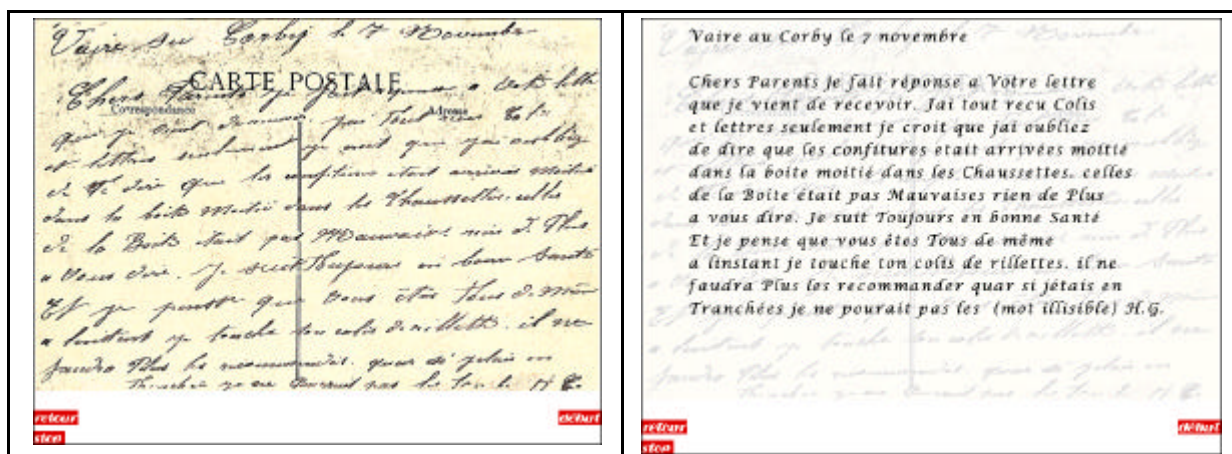 Vaire au Corby le 7 Novembre
CARTE POSTALE
Chers Parents je fait réponse a Votre lettre
Correspondance
Adresse
que je vient de recevoir. jai Tout recu Colis
et lettres seulement je croit que jai oubliez
de dire que les confitures etait arrivées moitié
dans la boite moitié dans les Chaussettes. celles
de la Boite était pas Mauvaises rien de Plus
a Vous dire. Je suit Toujours en bonne Santé
Et je pense que Vous êtes Tous de même
a linstant je touche ton colis de rillettes. il ne
faudra Plus les recommander. quar si jétais en
Tranchées je ne pourait pas les H. G.
retour
début
stop
Vaire au Corby le 7 novembre
Chers Parents je fait réponse a Votre lettre
que je vient de recevoir. Jai tout recu Colis
et lettres seulement je croit que jai oubliez
de dire que les confitures etait arrivées moitié
dans la boite moitié dans les Chaussettes. celles
de la Boite était pas Mauvaises rien de Plus
a vous dire. Je suit Toujours en bonne Santé
Et je pense que vous êtes Tous de même
a linstant je touche ton colis de rillettes. il ne
faudra Plus les recommander quar si jétais en
Tranchées je ne pourait pas les (mot illisible) H.G.
retour
début
stop